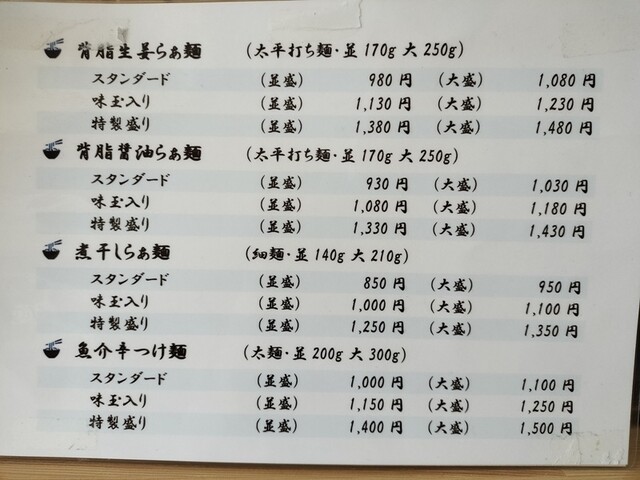 背脂生姜らぁ麺 (太平打ち麺・並170g 大250g)
スタンダード (並盛) 980円 (大盛) 1,080円
味玉入り (並盛) 1,130円 (大盛) 1,230円
特製盛り (並盛) 1,380円 (大盛) 1,480円
背脂醤油らぁ麺 (太平打ち麺・並170g 大250g)
スタンダード (並盛) 930円 (大盛) 1,030円
味玉入り (並盛) 1,080円 (大盛) 1,180円
特製盛り (並盛) 1,330円 (大盛) 1,430円
煮干しらぁ麺 (細麺・並140g 大210g)
スタンダード (並盛) 850円 (大盛) 950円
味玉入り (並盛) 1,000円 (大盛) 1,100円
特製盛り (並盛) 1,250円 (大盛) 1,350円
魚介辛つけ麺 (太麺・並200g 大300g)
スタンダード (並盛) 1,000円 (大盛) 1,100円
味玉入り (並盛) 1,150円 (大盛) 1,250円
特製盛り (並盛) 1,400円 (大盛) 1,500円